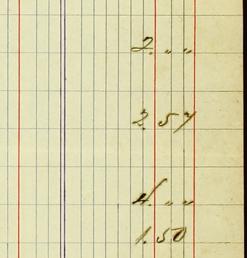 2. " "
2. 57
4. " "
1. 50